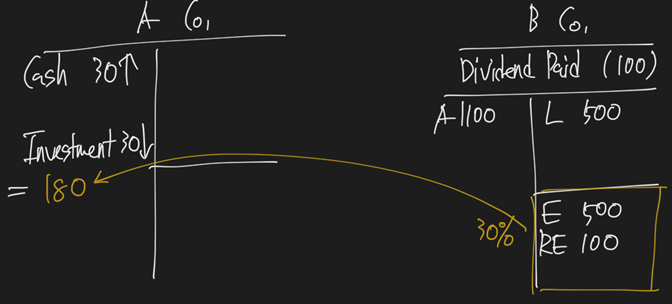 A Co.
Cash 30↑
Investment 30↓
= 180
B Co.
Dividend Paid (100)
A 1100
L 500
30%
E 500
RE 100